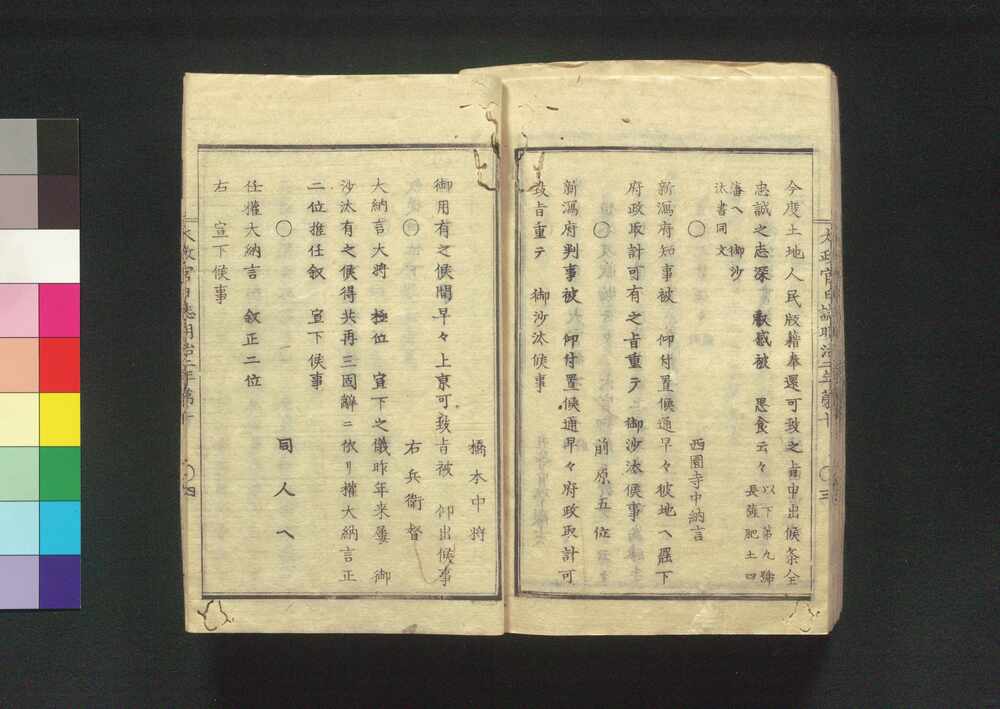 今度土地人民版籍奉還可致之旨申出候条全
忠誠之志深　叡感被　思食云々以下第九號長薩肥土四
藩ヘ　御沙汰書同文
〇　西園寺中納言
新潟府知事被　仰付置候通早々彼地ヘ罷下
府政取計可有之旨重テ　御沙汰候事
〇　前原五位
新潟府判事被　仰付置候通早々府政取計可
致旨重テ　御沙汰候事
太政官日誌明治二年第十　〇三
橋本中将
〇　右兵衛督
御用有之候間早々上京可致旨被　仰出候事
大納言大将　極位　宣下之儀昨年来屡　御
沙汰有之候得共再三固辞ニ依リ權大納言正
二位推任叙　宣下候事
〇　同人ヘ
任權大納言　叙正二位
右　宣下候事
太政官日誌明治二年第十　〇四